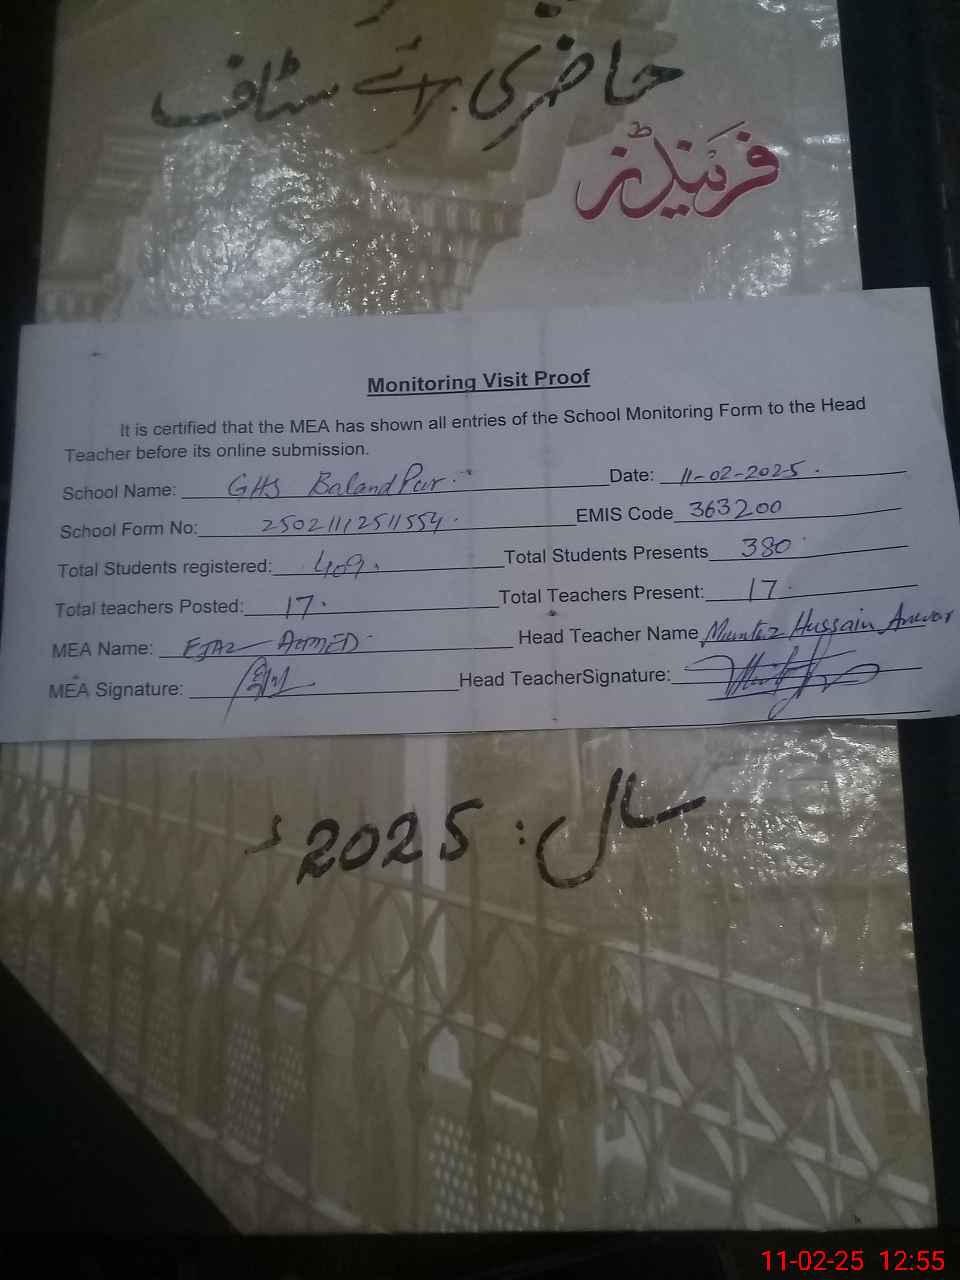 حاضری برائے سٹاف
فرینڈز
Monitoring Visit Proof
It is certified that the MEA has shown all entries of the School Monitoring Form to the Head
Teacher before its online submission.
School Name: GHS Baland Pur. Date: 11-02-2025.
School Form No: 25021112511554. EMIS Code 363200
Total Students registered: 409. Total Students Presents 380
Total teachers Posted: 17. Total Teachers Present: 17.
MEA Name: EJAZ AHMED Head Teacher Name Mumtaz Hussain Anwar
MEA Signature: Head TeacherSignature:
سال: 2025ء
11-02-25 12:55